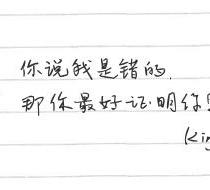 你说我是错的.
那你最好证明你